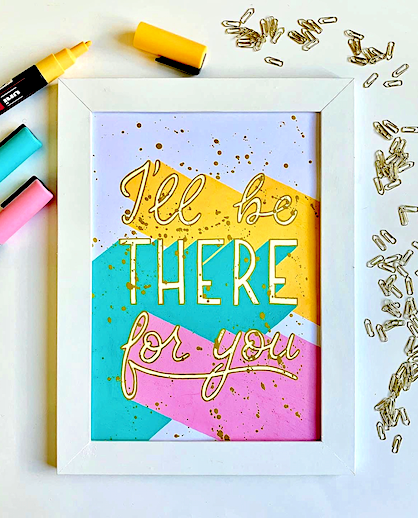 I'll be
THERE
for you